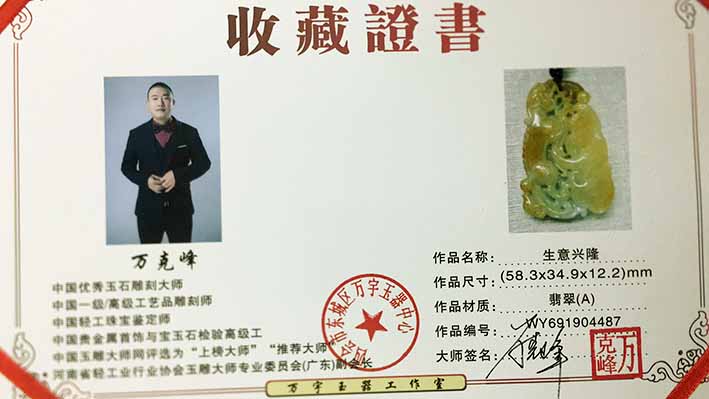 收藏證書
万克峰
中国优秀玉石雕刻大师
中国一级/高级工艺品雕刻师
中国轻工珠宝鉴定师
中国贵金属首饰与宝玉石检验高级工
中国玉雕大师网评选为“上榜大师”“推荐大师”
河南省轻工业行业协会玉雕大师专业委员会(广东)副会长
作品名称: 生意兴隆
作品尺寸: (58.3x34.9x12.2)mm
作品材质: 翡翠(A)
作品编号: WY691904487
大师签名:
万克峰
四会市东城区万宇玉器中心
万宇玉器工作室